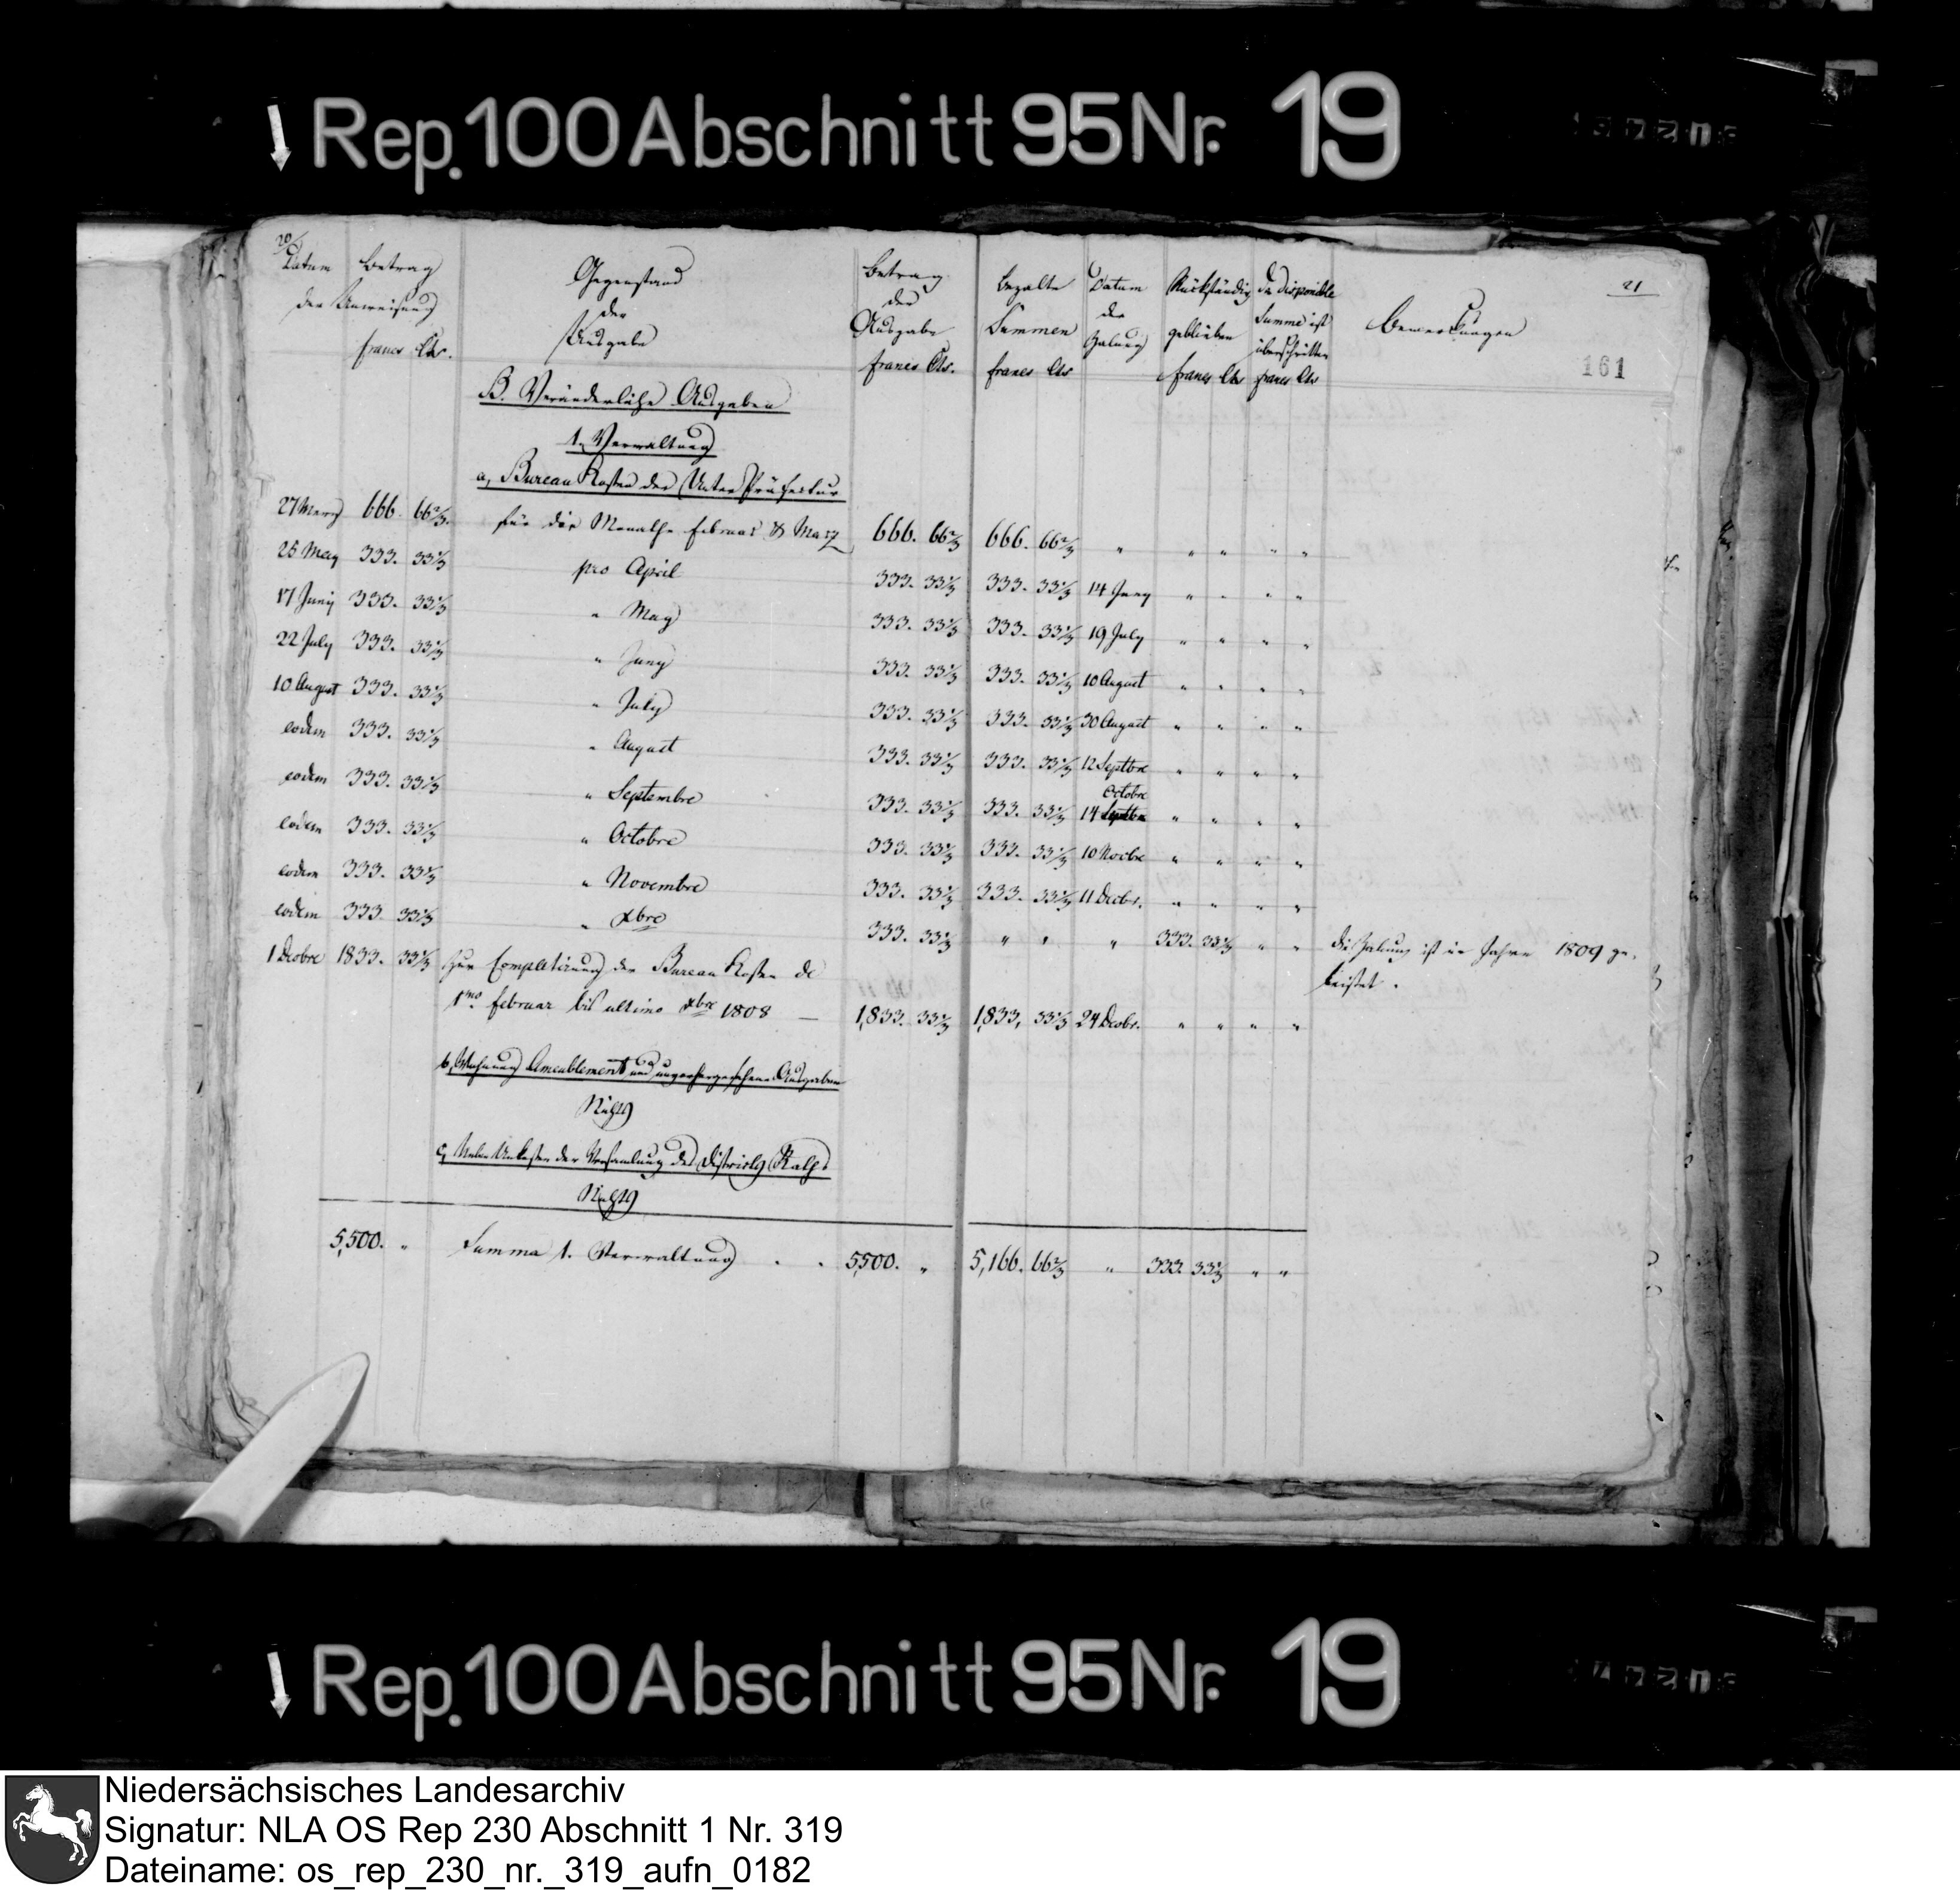 Rep. 100 Abschnitt 95 Nr. 19
20/
21
161
Datum Betrag der Anweisung francs Cts.
Gegenstand der Ausgabe
Betrag der Ausgabe francs Cts.
bezalte Summen francs Cts
Datum der Zalung
Rückständig geblieben francs Cts
die disponible Summe ist überschritten francs Cts
Bemerkungen
B. Veränderliche Ausgaben
1. Verwaltung
a, Bureau Kosten der Unter Präfectur
27 Merz 666. 66 2/3. für die Monathe februar & Marz 666. 66 2/3 666. 66 2/3 " " " " "
25 May 333. 33 1/3 pro April 333. 33 1/3 333. 33 1/3 14 Juny " " " "
17 Junij 333. 33 1/3 " May 333. 33 1/3 333. 33 1/3 19 July " " " "
22 July 333. 33 1/3 " Juny 333. 33 1/3 333. 33 1/3 10 August " " " "
10 August 333. 33 1/3 " July 333. 33 1/3 333. 33 1/3 30 August " " " "
eodem 333. 33 1/3 " August 333. 33 1/3 333. 33 1/3 12 Septbre " " " "
eodem 333. 33 1/3 " Septembre 333. 33 1/3 333. 33 1/3 14 Septbre Octobre " " " "
eodem 333. 33 1/3 " Octobre 333. 33 1/3 333. 33 1/3 10 Novbre " " " "
eodem 333. 33 1/3 " Novembre 333. 33 1/3 333. 33 1/3 11 Decbr. " " " "
eodem 333. 33 1/3 " Xbre 333. 33 1/3 " " " 333. 33 1/3 " " die Zalung ist im Jahre 1809 ge-
leistet.
1 Decbre 1833. 33 1/3 zur Completirung der Bureau Kosten de
1mo februar bis ultimo Xbre 1808 — 1,833. 33 1/3 1,833. 33 1/3 24 Decbr. " " " "
b, Wohnung Ameublement und unvorhergesehene Ausgaben
Nichts
c, Neben Unkosten der Versamlung des Districts Raths
Nichts
5,500. " Summa 1. Verwaltung . . 5,500. " 5,166. 66 2/3 " 333. 33 1/3 " "
Rep. 100 Abschnitt 95 Nr. 19
Niedersächsisches Landesarchiv
Signatur: NLA OS Rep 230 Abschnitt 1 Nr. 319
Dateiname: os_rep_230_nr._319_aufn_0182